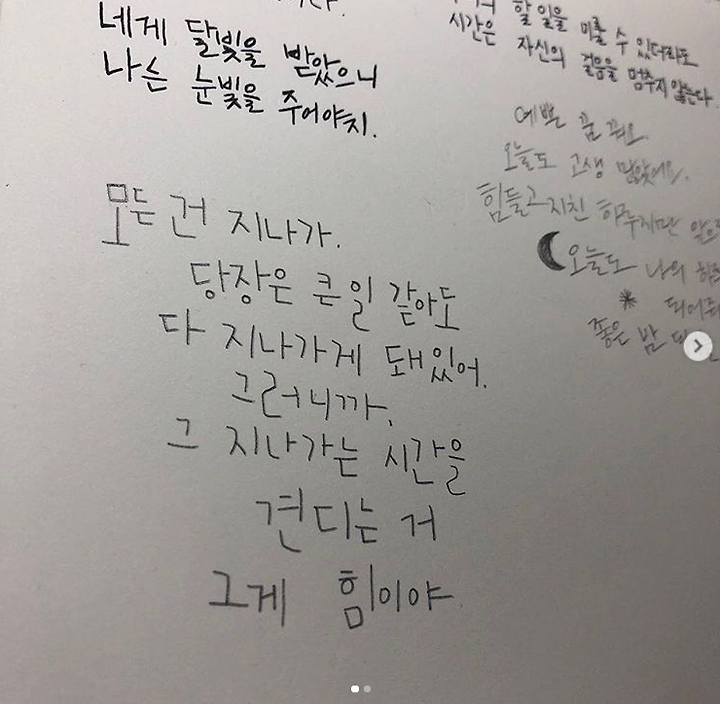 네게 달빛을 받았으니
나는 눈빛을 주어야지.
모든 건 지나가.
당장은 큰일 같아도
다 지나가게 돼있어.
그러니까,
그 지나가는 시간을
견디는 거
그게 힘이야
할 일을 미룰 수 있더라도
시간은 자신의 걸음을 멈추지 않는다
예쁜 꿈 꿔요.
오늘도 고생 많았어요.
힘들고 지친 하루지만
오늘도 나의
되어줘
좋은 밤